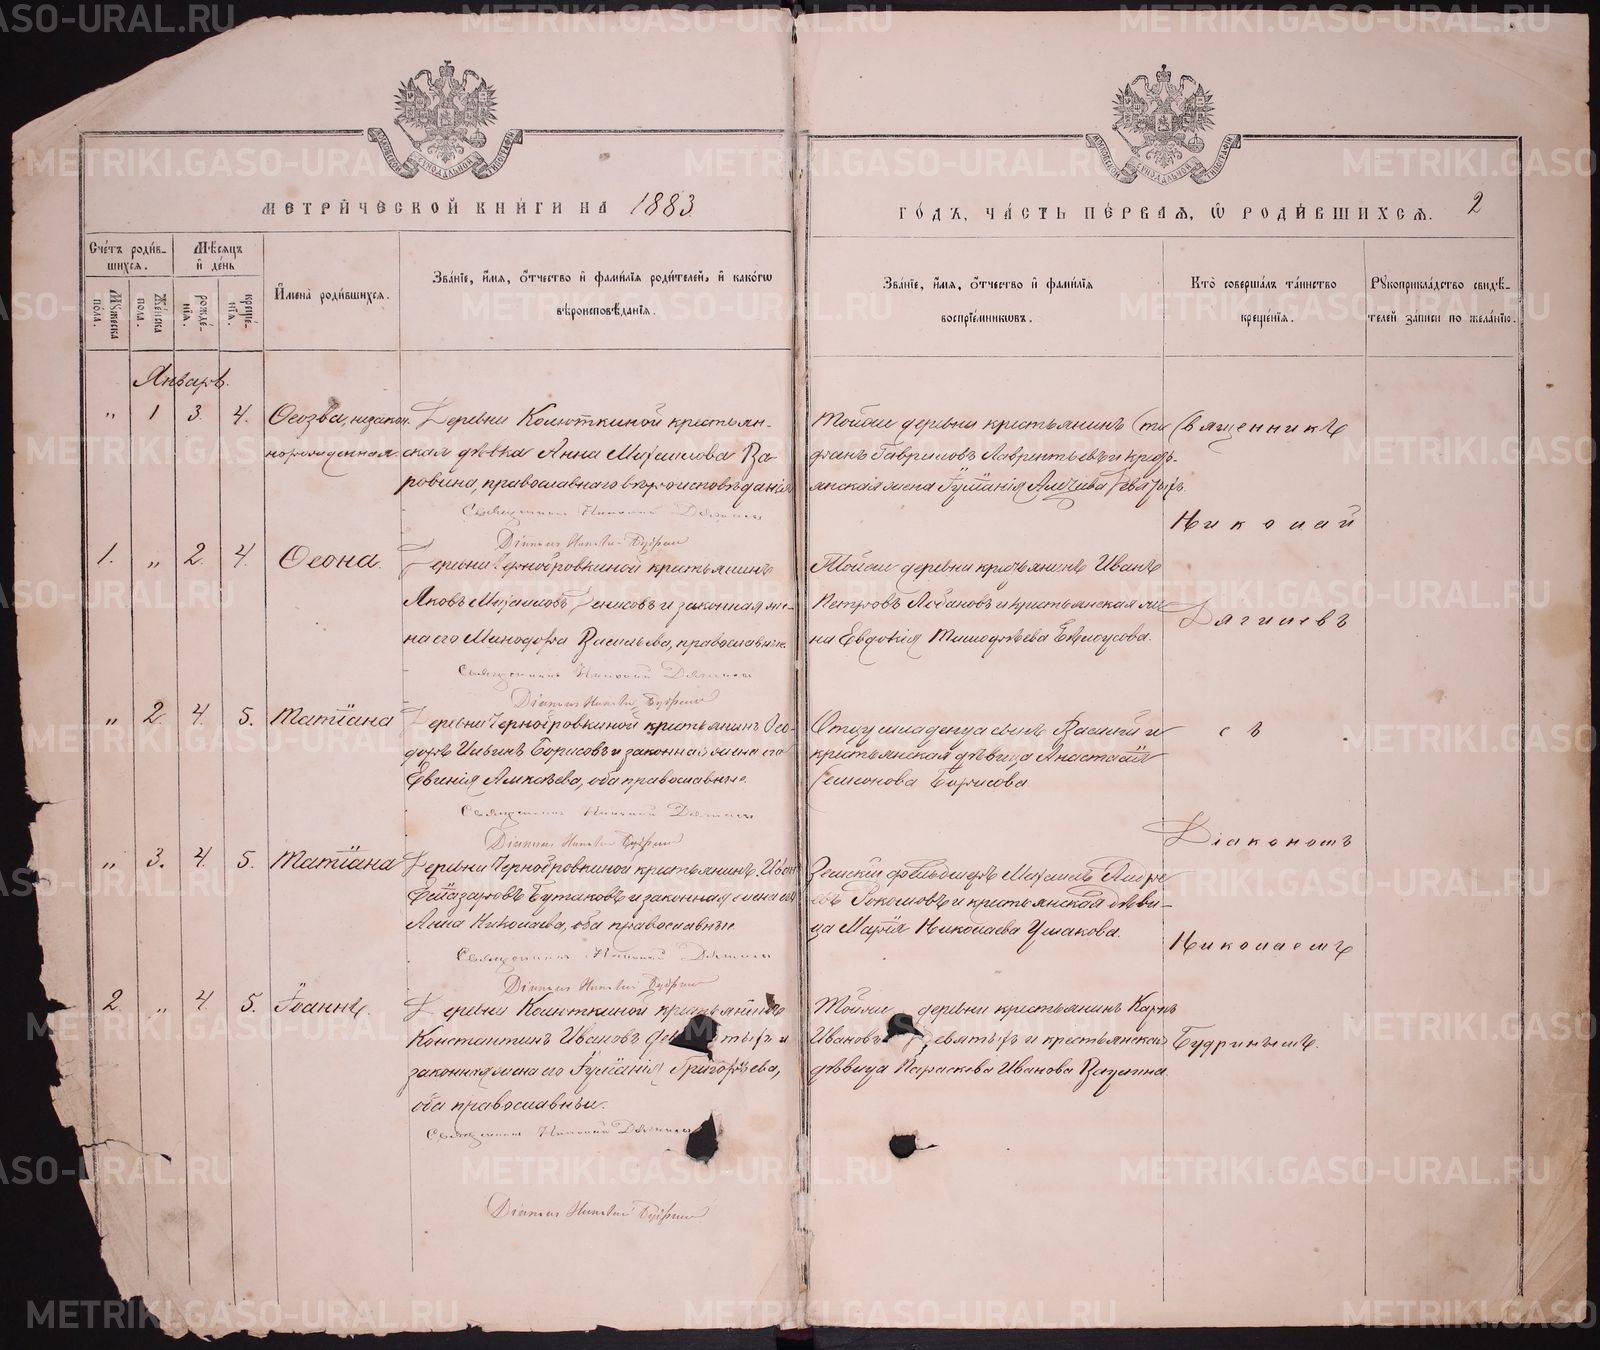 МЕТРИ́ЧЕСКОЙ КНИ́ГИ НА 1883
ГО́ДЪ, ЧА́СТЬ ПЕ́РВАЯ, Ѡ РОДИ́ВШИХСЯ.
2
Сче́тъ роди́в-
шихся.
Мѣ́сяцъ
и де́нь
Му́жеска по́ла.
Же́нска по́ла.
рожде́-нїя.
креще́-нїя.
И́мена роди́вшихся.
Зва́нїе, и́мя, о́тчество и фами́лїя роди́телей, и како́гѡ
вѣроисповѣ́данїя.
Зва́нїе, и́мя, о́тчество и фами́лїя
воспрїе́мникѡвъ.
Кто̀ соверша́лъ та́инство
креще́нїя.
Рукоприкла́дство свидѣ́-
телей за́писи по жела́нїю.
Январь.
" 1 3. 4.
незакон-
норожденная
Деревни Колюткиной крестьян-
ская дѣвка Анна Михаилова Ва-
православнаго вѣроисповѣданія
Священникъ Николай Дягилевъ
Діаконъ Николай Будринъ
Тойже деревни крестьянинъ Сте
фанъ Гавриловъ Лаврентьевъ и кресть-
янская жена
Священникъ
Николай
1. " 2. 4. Ѳеона.
Деревни Чернобровкиной крестьянинъ
Яковъ Михаиловъ Денисовъ и законная же-
на его Минодора Васильева, православные
Священникъ Николай Дягилевъ
Діаконъ Николай Будринъ
Тойже деревни крестьянинъ Иванъ
Петровъ Лобановъ и крестьянская же-
на Евдокія Тимофѣева Бѣлоусова.
Дягилевъ
" 2. 4. 5. Матїана
Деревни Чернобровкиной крестьянинъ Ѳео-
доръ Ильинъ Борисовъ и законная жена его
Евгенія Алексѣева, оба православные
Священникъ Николай Дягилевъ
Діаконъ Николай Будринъ
Отцу младенца сынъ Василій и
крестьянская дѣвица Анастасія
Семенова Борисова
съ
Діакономъ
" 3. 4. 5. Матїана
Деревни Чернобровкиной крестьянинъ Иванъ
Бутаковъ и законная жена его
Анна Николаева, оба православные
Священникъ Николай Дягилевъ
Діаконъ Николай Будринъ
Земскій фельдшеръ Михаилъ Андре
евъ и крестьянская дѣви-
ца Марія Николаева Ушакова.
Николаемъ
2 " 4. 5. Іоаннъ.
Деревни Колюткиной крестьянинъ
Константинъ Ивановъ и
законная жена его Іуліанія Григорьева,
оба православные.
Священникъ Николай Дягилевъ
Діаконъ Николай Будринъ
Тойже деревни крестьянинъ Карпъ
Ивановъ Девятыхъ и крестьянская
дѣвица Параскева Иванова
Будринымъ.
METRIKI.GASO-URAL.RU